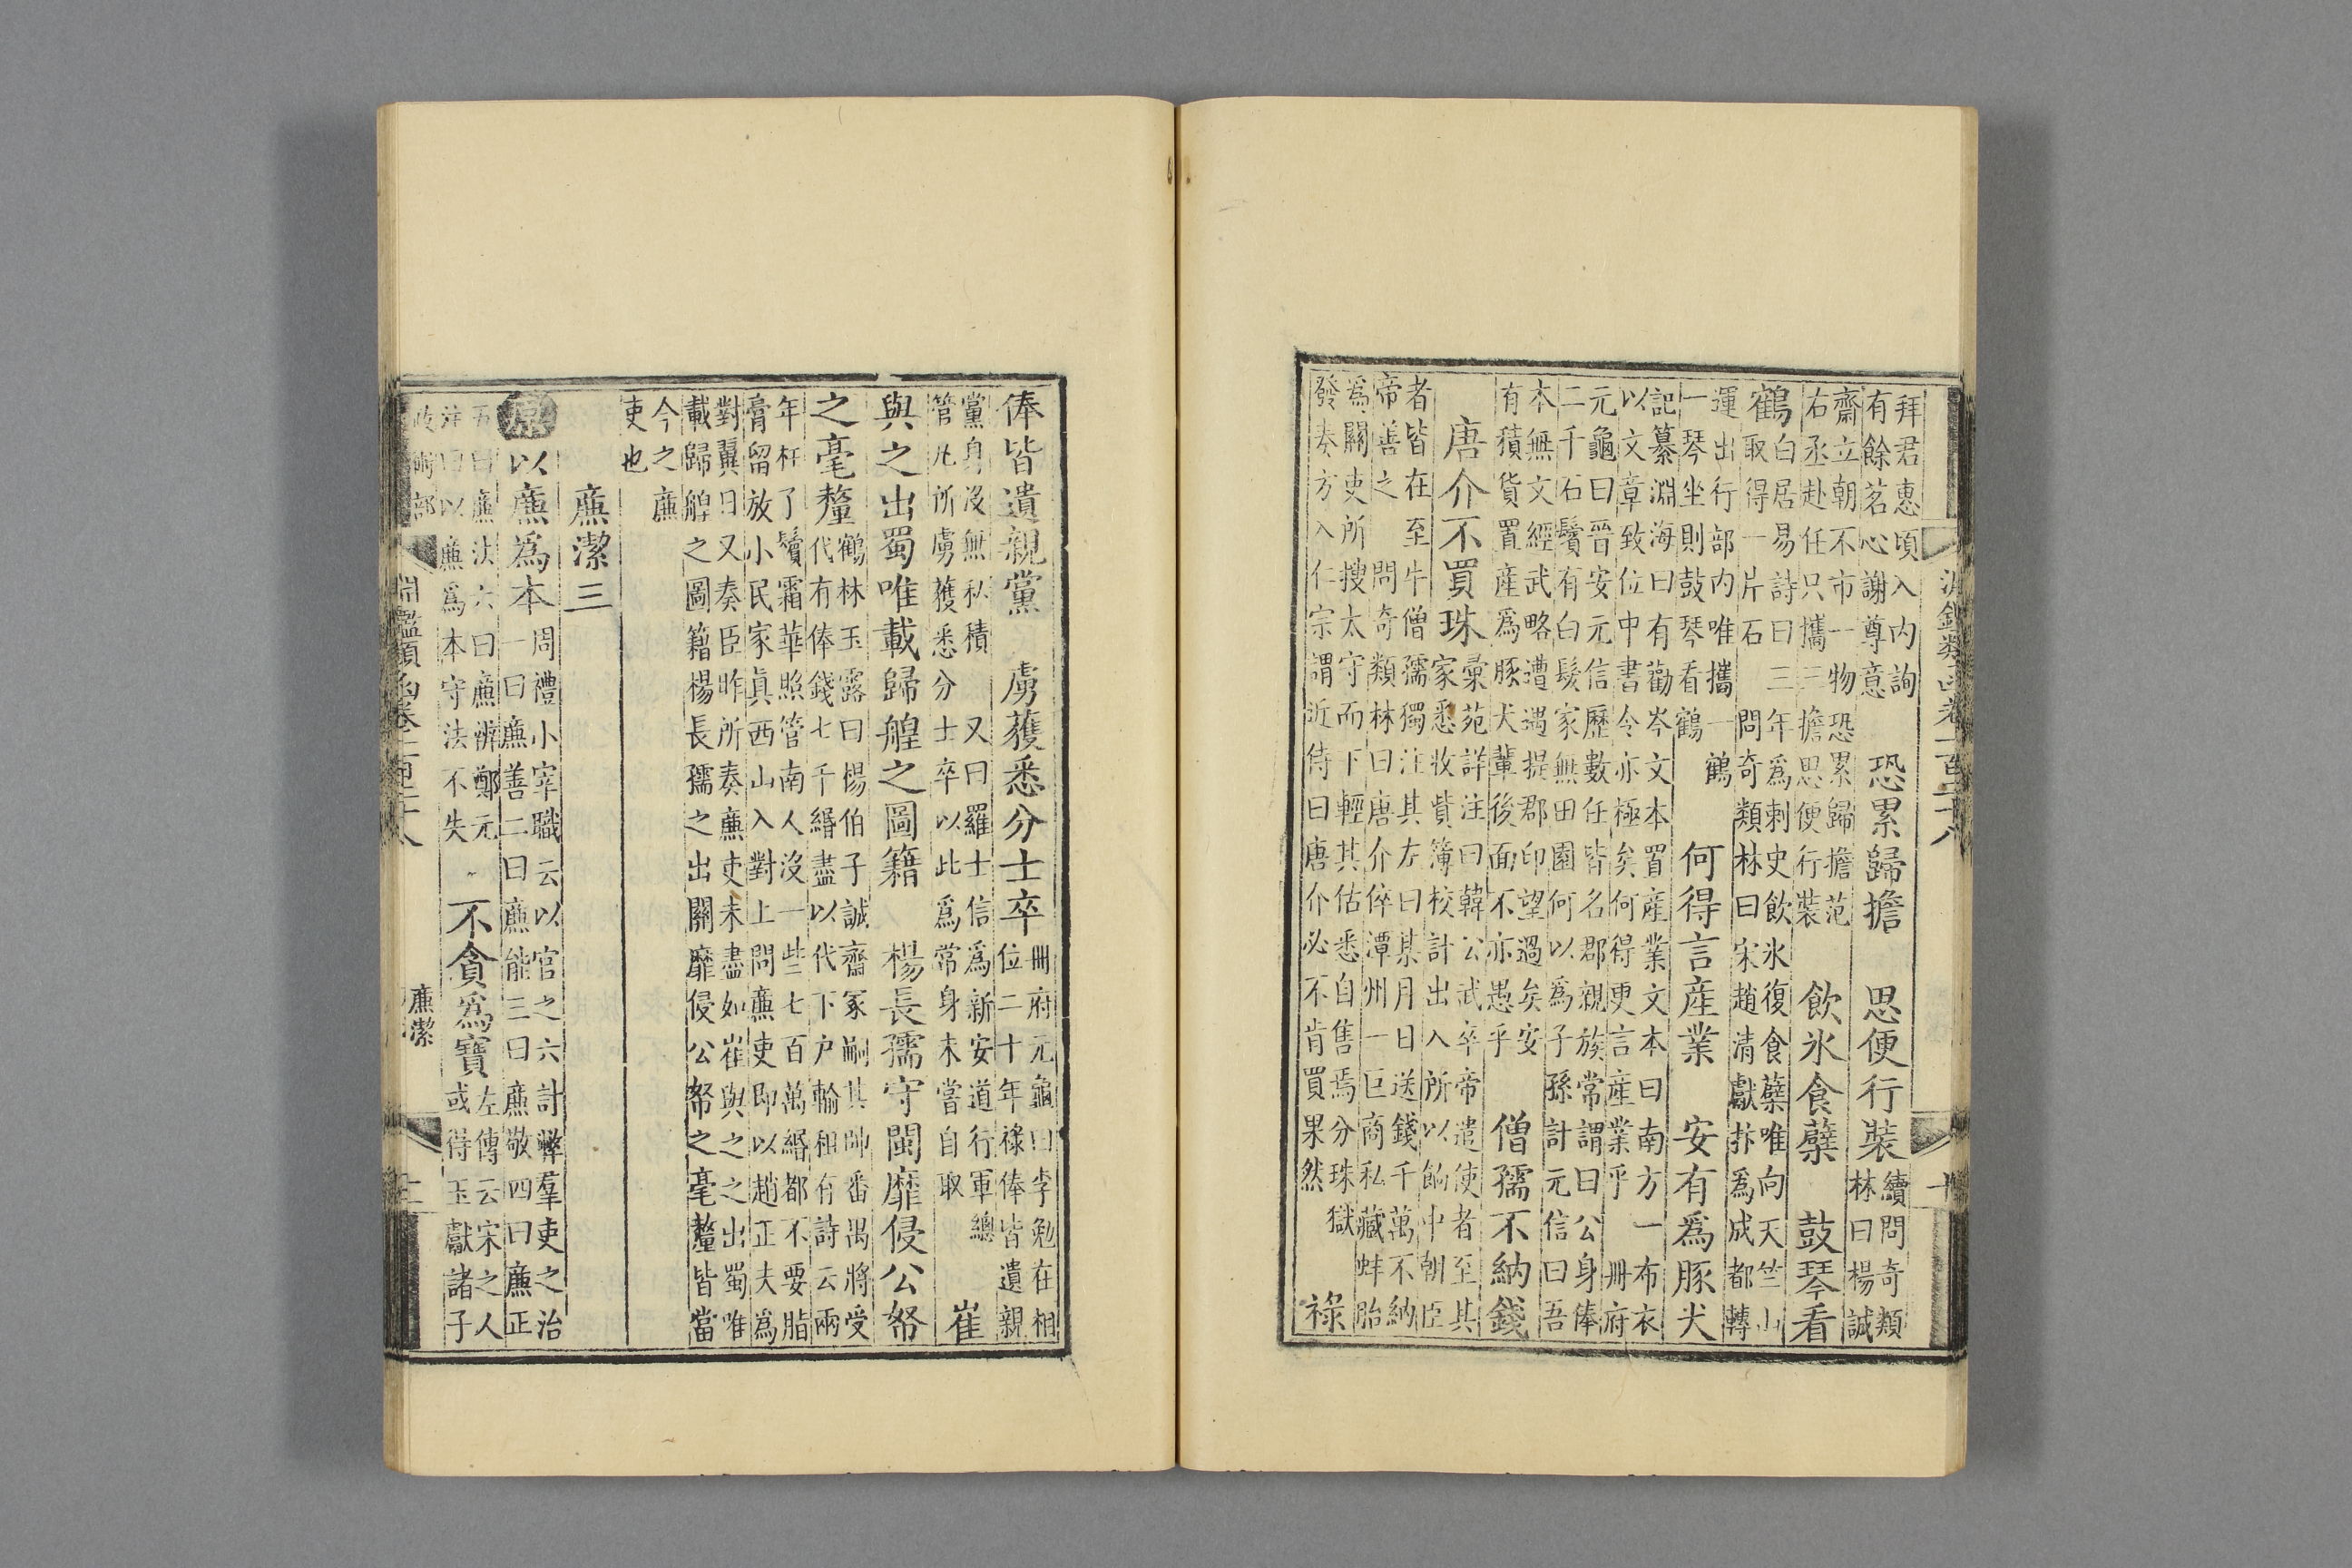 拜君惠頃入内詢
有餘茗心謝尊意
恐累歸擔　思便行裝
續問奇類
林曰楊誠
齋立朝不市一物恐累歸擔范
右丞赴任只攜三擔思便行裝
飲氷食蘗　鼓琴看
鶴
白居易詩曰三年爲刺史飲氷復食蘗唯向天竺山
取得一片石　問奇類林曰宋趙清獻拚爲成都轉
運出行部内唯攜一鶴
一琴坐則鼓琴看鶴
何得言産業　安有爲豚犬
記纂淵海曰有勸岑文本置産業文本曰南方一布衣
以文章致位中書令亦極矣何得更言産業乎　冊府
元龜曰晉安元信歷數任皆名郡親族常謂曰公身俸
二千石鬢有白髮家無田園何以爲子孫計元信曰吾
本無文經武略遭遇提郡印望過矣安
有積貨置産爲豚犬輩後面不亦愚乎
僧孺不納錢
唐介不買珠
彙苑詳注曰韓公武卒帝遣使者至其
家悉收貲簿校計出入所以餉中朝臣
者皆在至牛僧孺獨注其左曰某月日送錢千萬不納
帝善之　問奇類林曰唐介倅潭州一巨商私藏蚌胎
爲關吏所搜太守而下輕其估悉自售焉分珠獄
發奏方入仁宗謂近侍曰唐介必不肯買果然
祿
俸皆遺親黨　虜蒦悉分士卒
冊府元龜曰李勉在相
位二十年祿俸皆遺親
黨身没無私積　又曰羅士信爲新安道行軍總
管凡所虜獲悉分士卒以此爲常身未嘗自取
崔
與之出蜀唯載歸艎之圖籍　楊長孺守閩靡侵公帑
之毫釐
鶴林玉露曰楊伯子誠齋冢嗣其帥番禺將受
代有俸錢七千緡盡以代下户輸租有詩云兩
年枉了鬢霜華照管南人没一些七百萬緡都不要脂
膏留放小民家眞西山入對上問廉吏即以趙正夫爲
對翼日又奏臣昨所奏廉吏未盡如崔與之之出蜀唯
載歸艎之圖籍楊長孺之出關靡侵公帑之毫釐皆當
今之廉
吏也
廉潔三
原
以廉爲本
周禮小宰職云以官之六計弊羣吏之治
一曰廉善二曰廉能三曰廉敬四曰廉正
五曰廉法六曰廉辨鄭元
注曰以廉爲本守法不失
不貪爲寶
左傳云宋之人
或得玉獻諸子
政術部
淵鑑類函卷一百二十八
廉潔